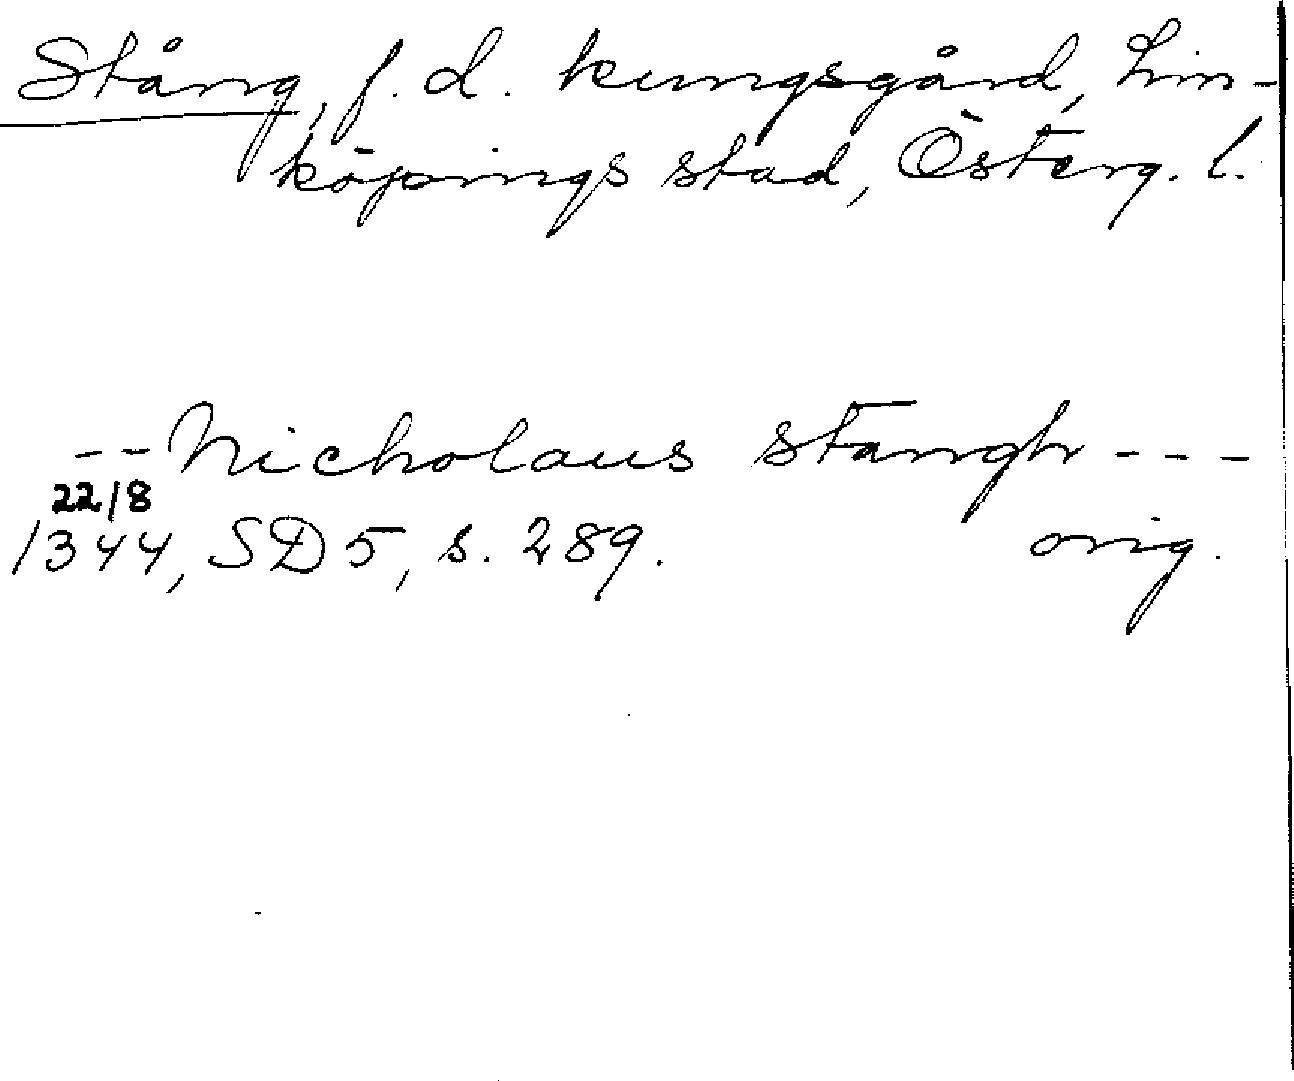 Stång, f. d. kungsgård, Lin-
köpings stad, Österg. l.
-- Nicholaus stangh ---
22/8
1344, SD 5, s. 289. orig.